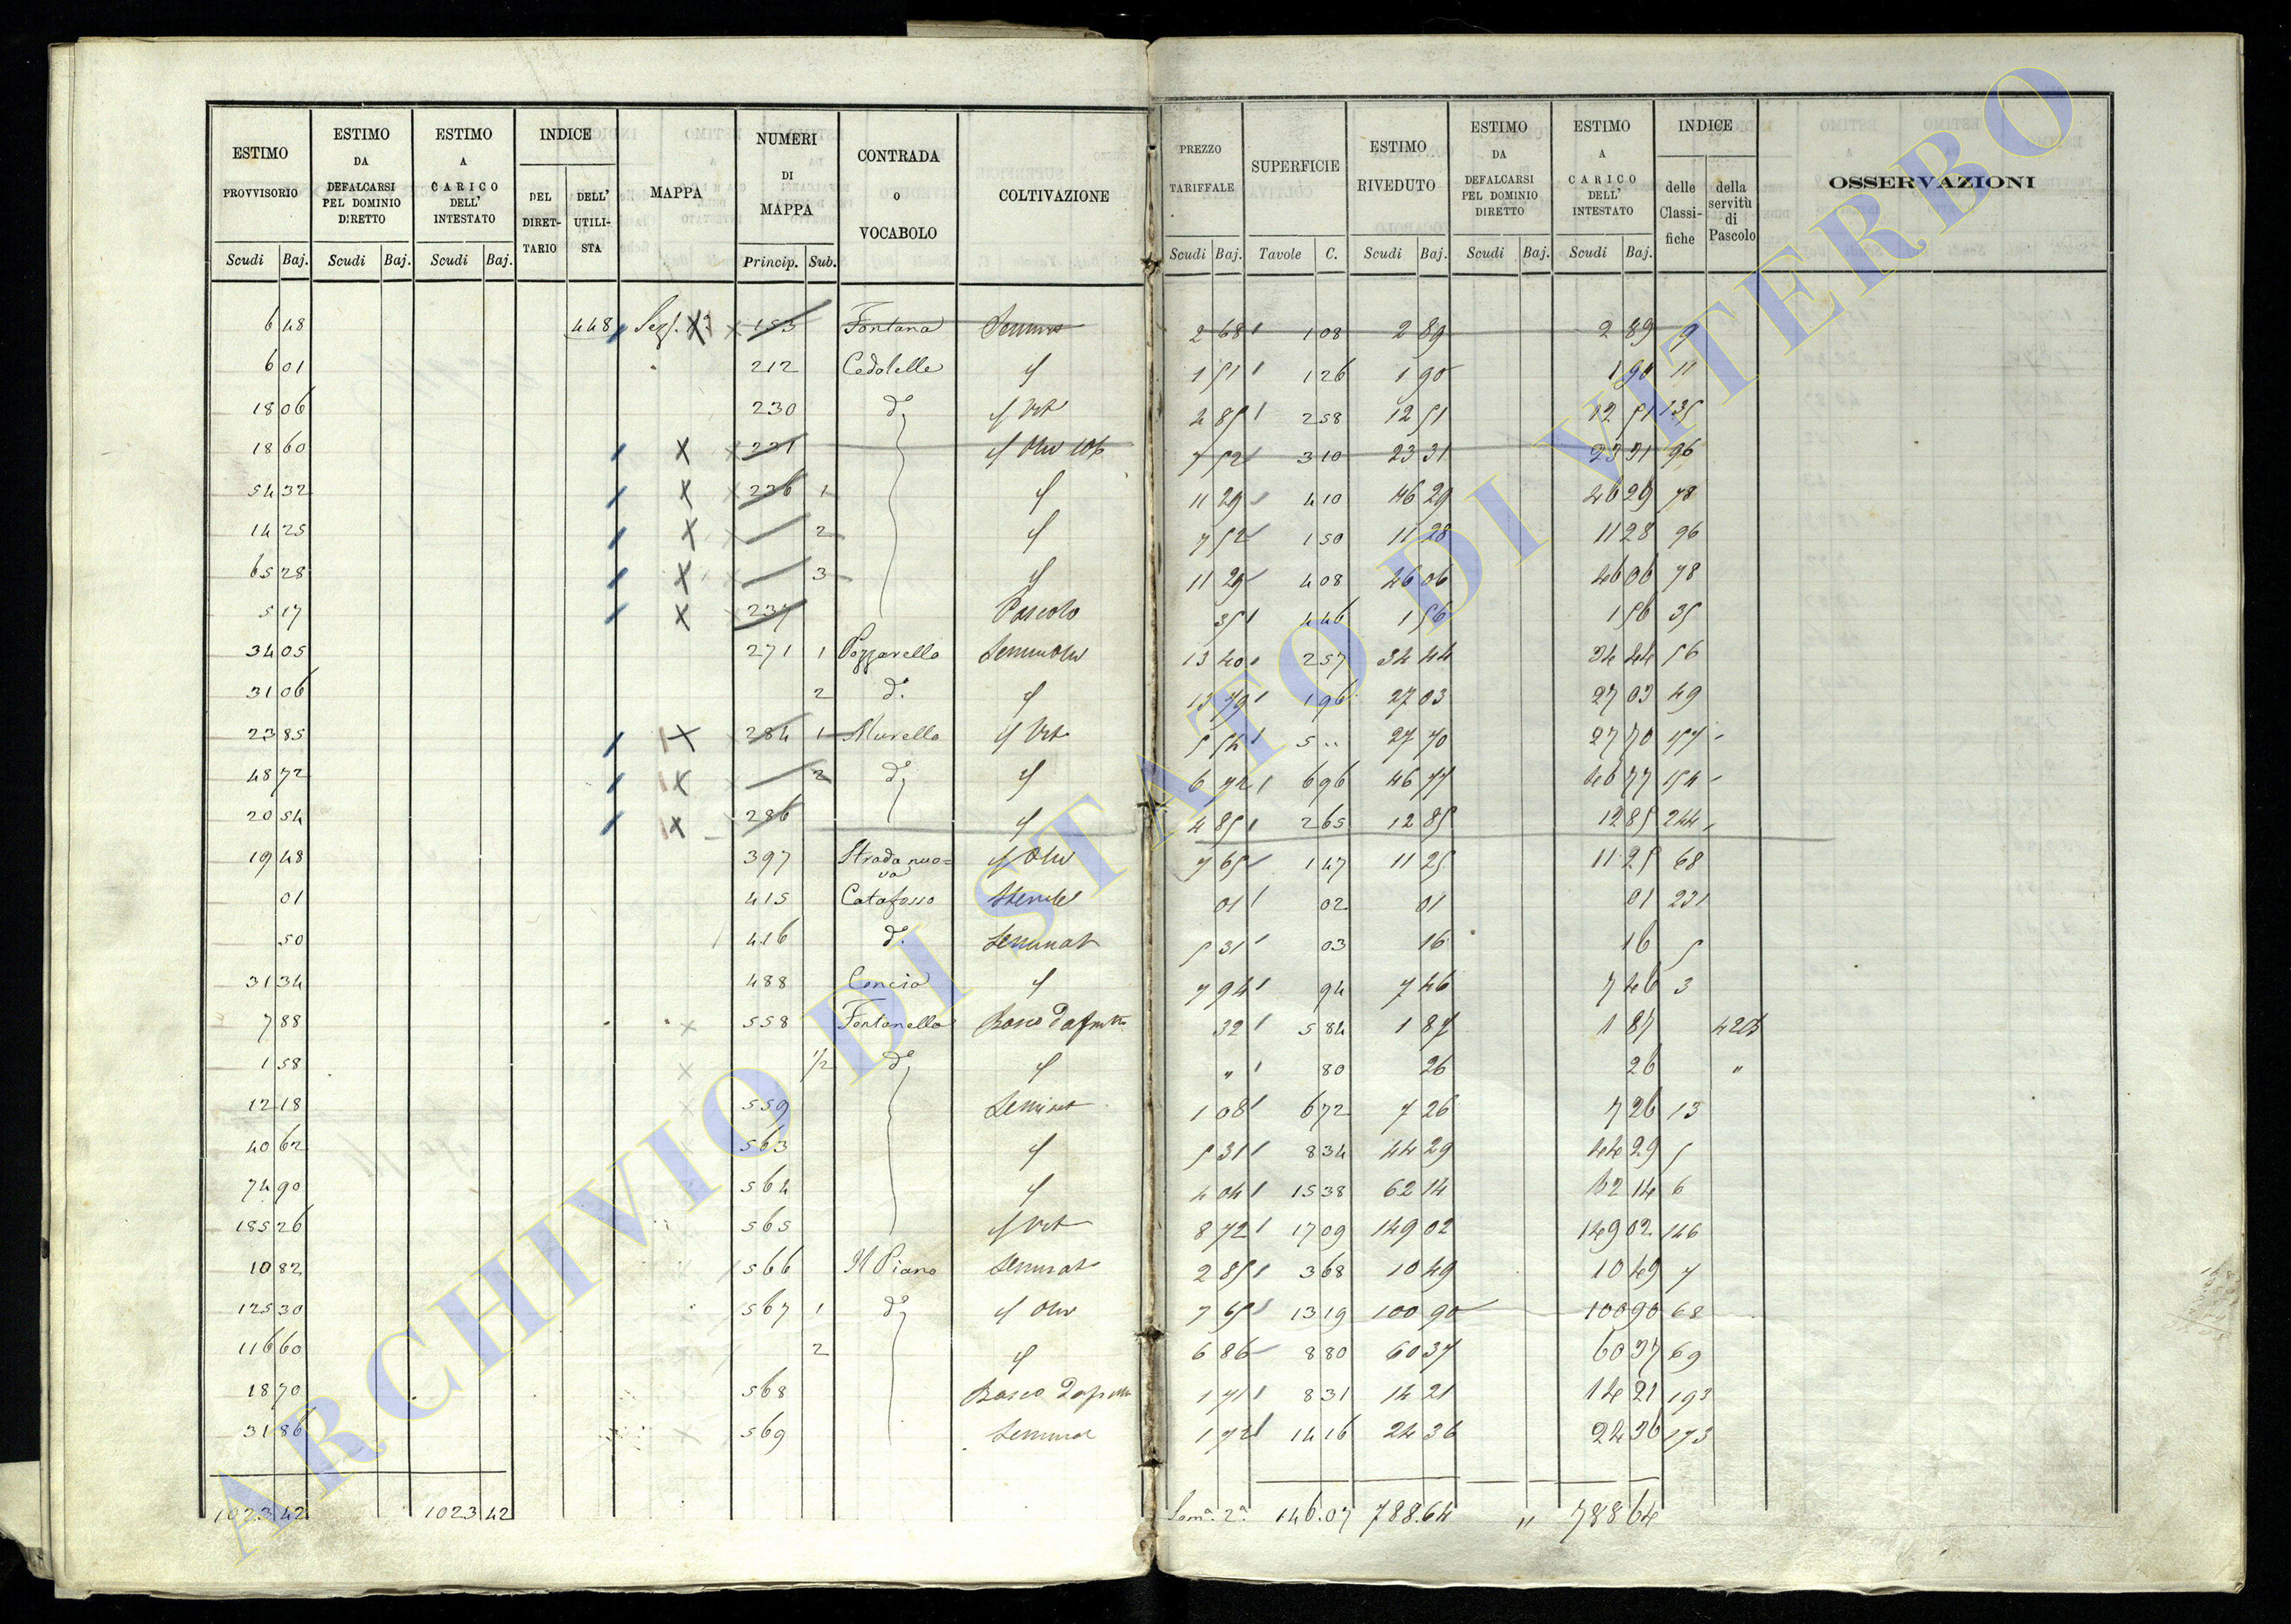 ESTIMO PROVVISORIO | ESTIMO DA DEFALCARSI PEL DOMINIO DIRETTO | ESTIMO A CARICO DELL' INTESTATO | INDICE | MAPPA | NUMERI DI MAPPA | CONTRADA O VOCABOLO | COLTIVAZIONE
DEL DIRETTARIO | DELL' UTILISTA
Scudi | Baj. | Scudi | Baj. | Scudi | Baj. | Princip. | Sub.
6 48 | 448 | 153 | Fontana
6 01 | 212 | Cedolelle | "
18 06 | 230 | d° | " Vit
18 60 | 231 | " Oliv
54 32 | 236 | 1 | "
14 25 | — | 2 | "
65 28 | — | 3 | "
5 17 | 237 | Pascolo
34 05 | 271 | 1 | Pozzarello
31 06 | 2 | d° | "
23 85 | 284 | 1 | Murello | " Vit
48 72 | — | 2 | d° | "
20 54 | 286 | "
19 48 | 397 | Strada nuo=
va | " Oliv
01 | 415 | Catafosso | Sterile
50 | 416 | d° | Seminat
31 34 | 488 | Concia | "
7 88 | 558 | Fontanella | Bosco da frutto
1 58 | 1/2 | d° | "
12 18 | 559 | Seminat
40 62 | 563 | "
74 90 | 564 | "
185 26 | 565 | " Vit
10 82 | 566 | Il Piano | Seminat
125 30 | 567 | 1 | d° | " Oliv
116 60 | 2 | "
18 70 | 568 | Bosco da frutto
31 86 | 569 | Seminat
1023 42 | 1023 42
PREZZO TARIFFALE | SUPERFICIE | ESTIMO RIVEDUTO | ESTIMO DA DEFALCARSI PEL DOMINIO DIRETTO | ESTIMO A CARICO DELL' INTESTATO | INDICE | OSSERVAZIONI
delle Classifiche | della servitù di Pascolo
Scudi | Baj. | Tavole | C. | Scudi | Baj. | Scudi | Baj. | Scudi | Baj.
2 68 | 1 08 | 2 89 | 2 89 | 9
1 51 | 1 26 | 1 90 | 1 90 | 11
4 85 | 2 58 | 12 51 | 12 51 | 135
7 52 | 3 10 | 23 31 | 23 31 | 96
11 29 | 4 10 | 46 29 | 46 29 | 78
7 52 | 1 50 | 11 28 | 11 28 | 96
11 29 | 4 08 | 46 06 | 46 06 | 78
35 | 4 46 | 1 56 | 1 56 | 35
13 40 | 2 57 | 34 44 | 34 44 | 56
13 79 | 1 96 | 27 03 | 27 03 | 49
5 54 | 5 .. | 27 70 | 27 70 | 157
6 72 | 6 96 | 46 77 | 46 77 | 154
4 85 | 2 65 | 12 85 | 12 85 | 244
7 65 | 1 47 | 11 25 | 11 25 | 68
01 | 02 | 01 | 01 | 231
5 31 | 03 | 16 | 16 | 5
7 94 | 94 | 7 46 | 7 46 | 3
32 | 5 84 | 1 87 | 1 87
" | 80 | 26 | 26 | "
1 08 | 6 72 | 7 26 | 7 26 | 13
5 31 | 8 34 | 44 29 | 44 29 | 5
4 04 | 15 38 | 62 14 | 62 14 | 6
8 72 | 17 09 | 149 02 | 149 02 | 146
2 85 | 3 68 | 10 49 | 10 49 | 7
7 65 | 13 19 | 100 90 | 100 90 | 68
6 86 | 8 80 | 60 37 | 60 37 | 69
1 71 | 8 31 | 14 21 | 14 21 | 193
1 72 | 14 16 | 24 36 | 24 36 | 173
Som.a 2.a 146.07 | 788.64 | " | 788 64
ARCHIVIO DI STATO DI VITERBO